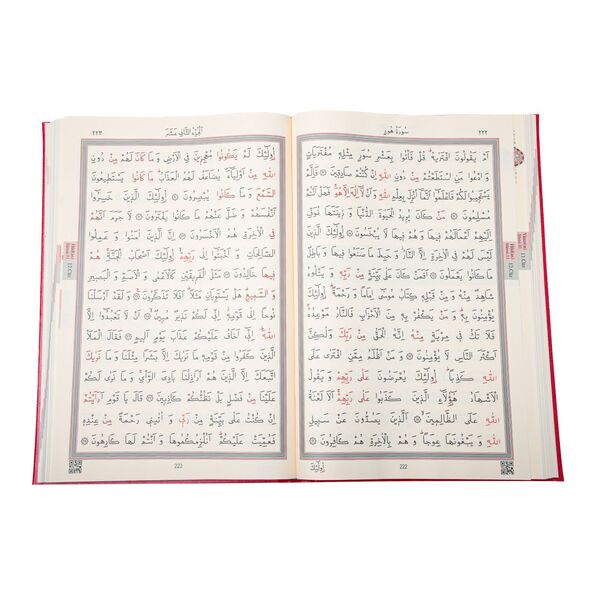 ٢٢٢
سُورَةُ هُودٍ
اَمْ يَقُولُونَ افْتَرٰيهُ قُلْ فَأْتُوا بِعَشْرِ سُوَرٍ مِثْلِهِ مُفْتَرَيَاتٍ
وَادْعُوا مَنِ اسْتَطَعْتُمْ مِنْ دُونِ اللّٰهِ اِنْ كُنْتُمْ صَادِقِينَ ۞ فَاِلَّمْ
يَسْتَجِيبُوا لَكُمْ فَاعْلَمُوا اَنَّمَا اُنْزِلَ بِعِلْمِ اللّٰهِ وَاَنْ لَا اِلٰهَ اِلَّا هُوَ فَهَلْ اَنْتُمْ
مُسْلِمُونَ ۞ مَنْ كَانَ يُرِيدُ الْحَيٰوةَ الدُّنْيَا وَ زِينَتَهَا نُوَفِّ
اِلَيْهِمْ اَعْمَالَهُمْ فِيهَا وَ هُمْ فِيهَا لَا يُبْخَسُونَ ۞ اُولٰئِكَ الَّذِينَ
لَيْسَ لَهُمْ فِي الْاٰخِرَةِ اِلَّا النَّارُ وَ حَبِطَ مَا صَنَعُوا فِيهَا وَ بَاطِلٌ
مَا كَانُوا يَعْمَلُونَ ۞ اَفَمَنْ كَانَ عَلٰى بَيِّنَةٍ مِنْ رَبِّهِ وَ يَتْلُوهُ
شَاهِدٌ مِنْهُ وَ مِنْ قَبْلِهِ كِتَابُ مُوسٰى اِمَامًا وَ رَحْمَةً اُولٰئِكَ
يُؤْمِنُونَ بِهِ وَ مَنْ يَكْفُرْ بِهِ مِنَ الْاَحْزَابِ فَالنَّارُ مَوْعِدُهُ
فَلَا تَكُ فِي مِرْيَةٍ مِنْهُ اِنَّهُ الْحَقُّ مِنْ رَبِّكَ وَلٰكِنَّ
اَكْثَرَ النَّاسِ لَا يُؤْمِنُونَ ۞ وَ مَنْ اَظْلَمُ مِمَّنِ افْتَرٰى عَلَى
اللّٰهِ كَذِبًا اُولٰئِكَ يُعْرَضُونَ عَلٰى رَبِّهِمْ وَ يَقُولُ
الْاَشْهَادُ هٰؤُلَاءِ الَّذِينَ كَذَبُوا عَلٰى رَبِّهِمْ اَلَا لَعْنَةُ
اللّٰهِ عَلَى الظَّالِمِينَ ۞ اَلَّذِينَ يَصُدُّونَ عَنْ سَبِيلِ
اللّٰهِ وَ يَبْغُونَهَا عِوَجًا وَ هُمْ بِالْاٰخِرَةِ هُمْ كَافِرُونَ ۞
اُولٰئِكَ
222
اَلْجُزْءُ الثَّانِي عَشَرَ
٢٢٣
اُولٰئِكَ لَمْ يَكُونُوا مُعْجِزِينَ فِي الْاَرْضِ وَ مَا كَانَ لَهُمْ مِنْ دُونِ
اللّٰهِ مِنْ اَوْلِيَاءَ يُضَاعَفُ لَهُمُ الْعَذَابُ مَا كَانُوا يَسْتَطِيعُونَ
السَّمْعَ وَ مَا كَانُوا يُبْصِرُونَ ۞ اُولٰئِكَ الَّذِينَ خَسِرُوا
اَنْفُسَهُمْ وَ ضَلَّ عَنْهُمْ مَا كَانُوا يَفْتَرُونَ ۞ لَا جَرَمَ اَنَّهُمْ
فِي الْاٰخِرَةِ هُمُ الْاَخْسَرُونَ ۞ اِنَّ الَّذِينَ اٰمَنُوا وَ عَمِلُوا
الصَّالِحَاتِ وَ اَخْبَتُوا اِلٰى رَبِّهِمْ اُولٰئِكَ اَصْحَابُ الْجَنَّةِ هُمْ
فِيهَا خَالِدُونَ ۞ مَثَلُ الْفَرِيقَيْنِ كَالْاَعْمٰى وَ الْاَصَمِّ وَ الْبَصِيرِ
وَ السَّمِيعِ هَلْ يَسْتَوِيَانِ مَثَلًا اَفَلَا تَذَكَّرُونَ ۞ وَ لَقَدْ اَرْسَلْنَا
نُوحًا اِلٰى قَوْمِهِ اِنِّي لَكُمْ نَذِيرٌ مُبِينٌ ۞ اَنْ لَا تَعْبُدُوا اِلَّا
اللّٰهَ اِنِّي اَخَافُ عَلَيْكُمْ عَذَابَ يَوْمٍ اَلِيمٍ ۞ فَقَالَ الْمَلَاُ
الَّذِينَ كَفَرُوا مِنْ قَوْمِهِ مَا نَرٰيكَ اِلَّا بَشَرًا مِثْلَنَا وَ مَا نَرٰيكَ
اتَّبَعَكَ اِلَّا الَّذِينَ هُمْ اَرَاذِلُنَا بَادِيَ الرَّأْيِ وَ مَا نَرٰى لَكُمْ
عَلَيْنَا مِنْ فَضْلٍ بَلْ نَظُنُّكُمْ كَاذِبِينَ ۞ قَالَ يَا قَوْمِ اَرَاَيْتُمْ
اِنْ كُنْتُ عَلٰى بَيِّنَةٍ مِنْ رَبِّي وَ اٰتٰينِي رَحْمَةً مِنْ عِنْدِهِ
فَعُمِّيَتْ عَلَيْكُمْ اَنُلْزِمُكُمُوهَا وَ اَنْتُمْ لَهَا كَارِهُونَ ۞
223